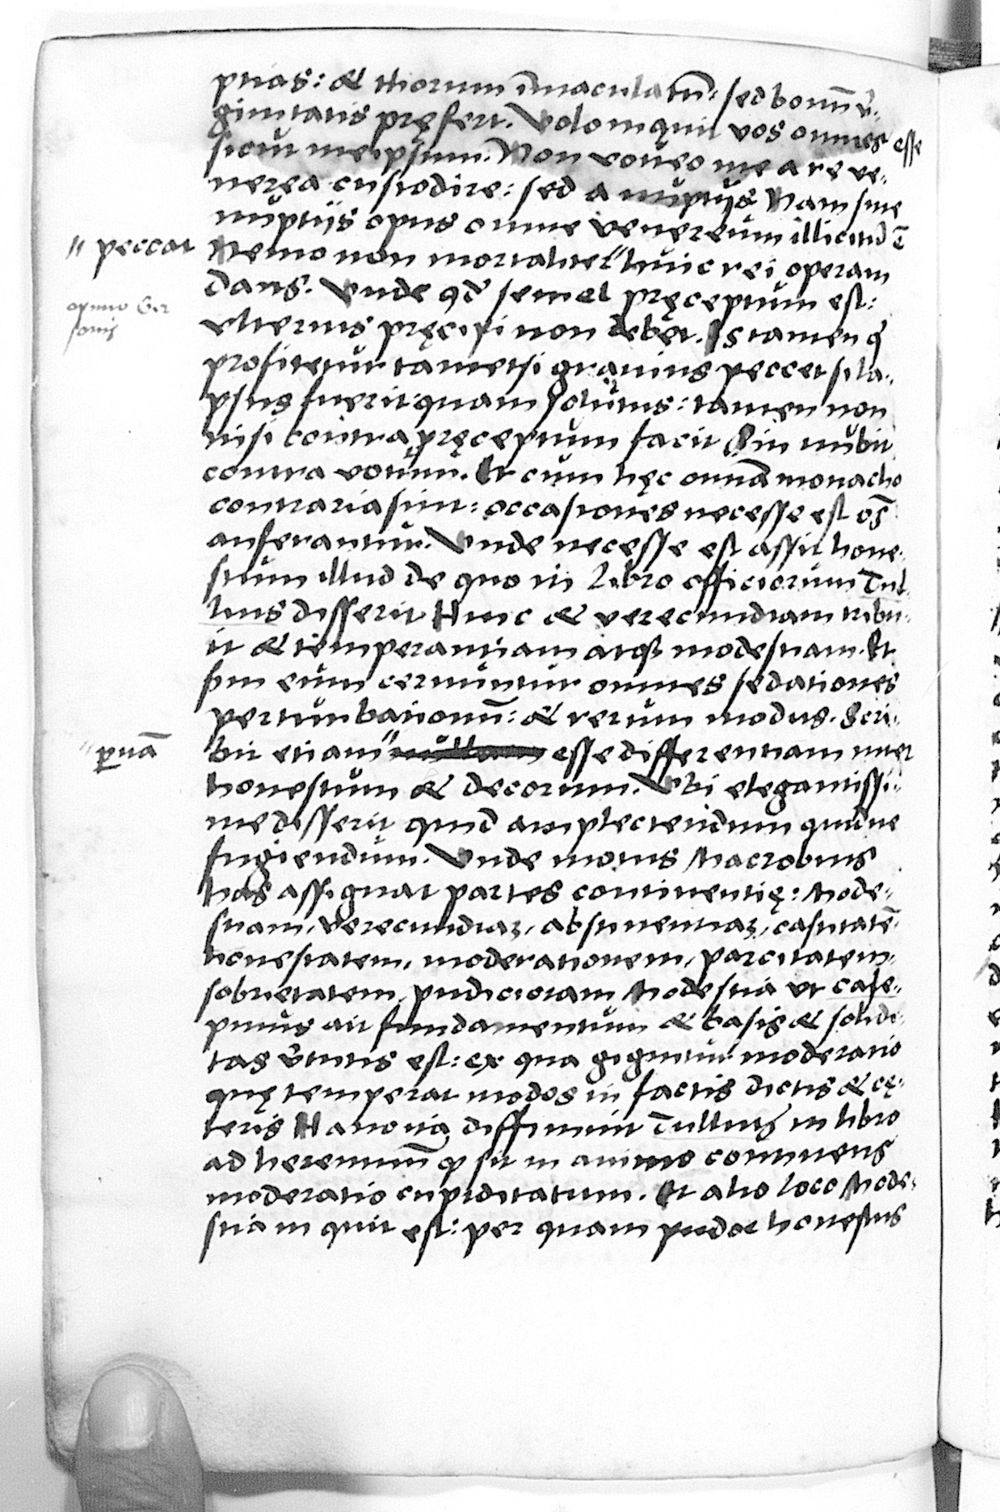 ptias: & thorum im̄aculatū: sed bonum v̄-
ginitatis pręfert. Volo inquit vos omnes esse
sicut meipsum. Non voueo me a re ve-
nerea custodire: sed a nuptijs Nam sine
nuptijs opus omne venereum illicitū ē
" peccat
Nemo non mortaliter" huic rei operam
dans. Vnde qd̄ semel pręceptum est:
opinio Ger
sonis
vlterius pręcipi non debet. Is tamen q̄
profitetur tametsi grauius peccet si la-
psus fuerit quam solutus: tamen non
nisi contra pręceptum facit Sin nubit
contra votum. Et cum hęc omnia monacho
contraria sint: occasiones necesse est oēs
auferantur. Vnde necesse est assit hone-
stum illud de quo in libro officiorum Tul-
lius disserit Huic & verecundiam tribu-
it & temperantiam atq3 modestiam. Et
sm̄ eum cernuntur omnes sedationes
perturbationū: & rerum modus. Scri-
" ꝑuā
bit etiam" nullam esse differentiam inter
honestum & decorum. Vbi elegantissi-
me disserit quid amplectendum quidue
fugiendum. Vnde motus Macrobius
has assignat partes continentię: Mode-
stiam, verecundiaꝫ, abstinentiaꝫ, castitatē
honestatem, moderationem, parcitatem,
sobrietatem, pudicitiam Modestia vt cale-
pinus ait fundamentum & basis & solidi-
tas v̄tutis est: ex qua gignitur moderatio
quę temperat modos in factis dictis & cę-
teris Hanc ita diffiniuit Tullius in libro
ad herennium ꝙ sit in animo continens
moderatio cupiditatum. Et alio loco Mode-
stia inquit est: per quam pudor honestus